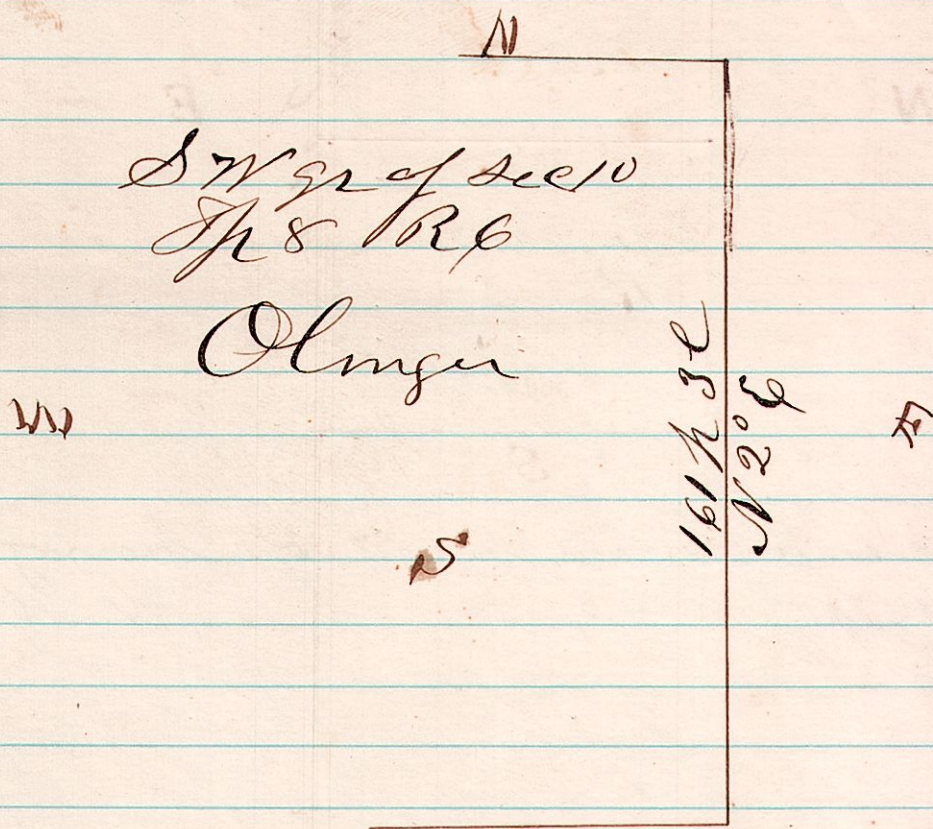 N
S W qr of Sec 10
Tp 8 R 6
Olinger
W
E
161 p 3 l
N 2° E
S